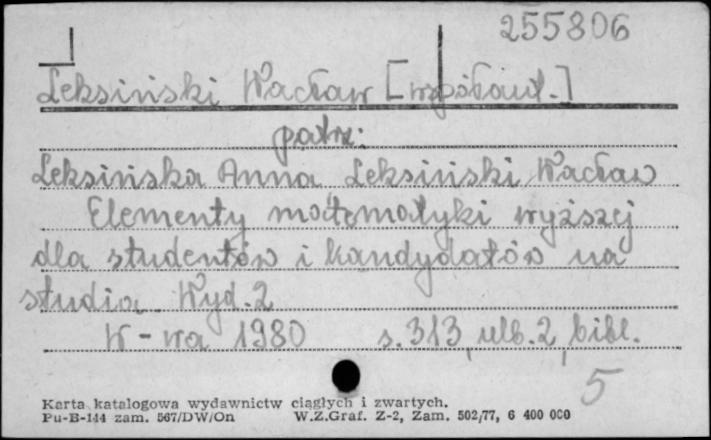 255806
Leksiński Wacław [współaut.]
patrz:
Leksińska Anna, Leksiński Wacław
Elementy matematyki wyższej
dla studentów i kandydatów na
studia. Wyd. 2
W-wa 1980 s. 313, nlb. 2, bibl.
5
Karta katalogowa wydawnictw ciągłych i zwartych.
Pu-B-144 zam. 567/DW/On W.Z.Graf. Z-2, Zam. 502/77, 6 400 000